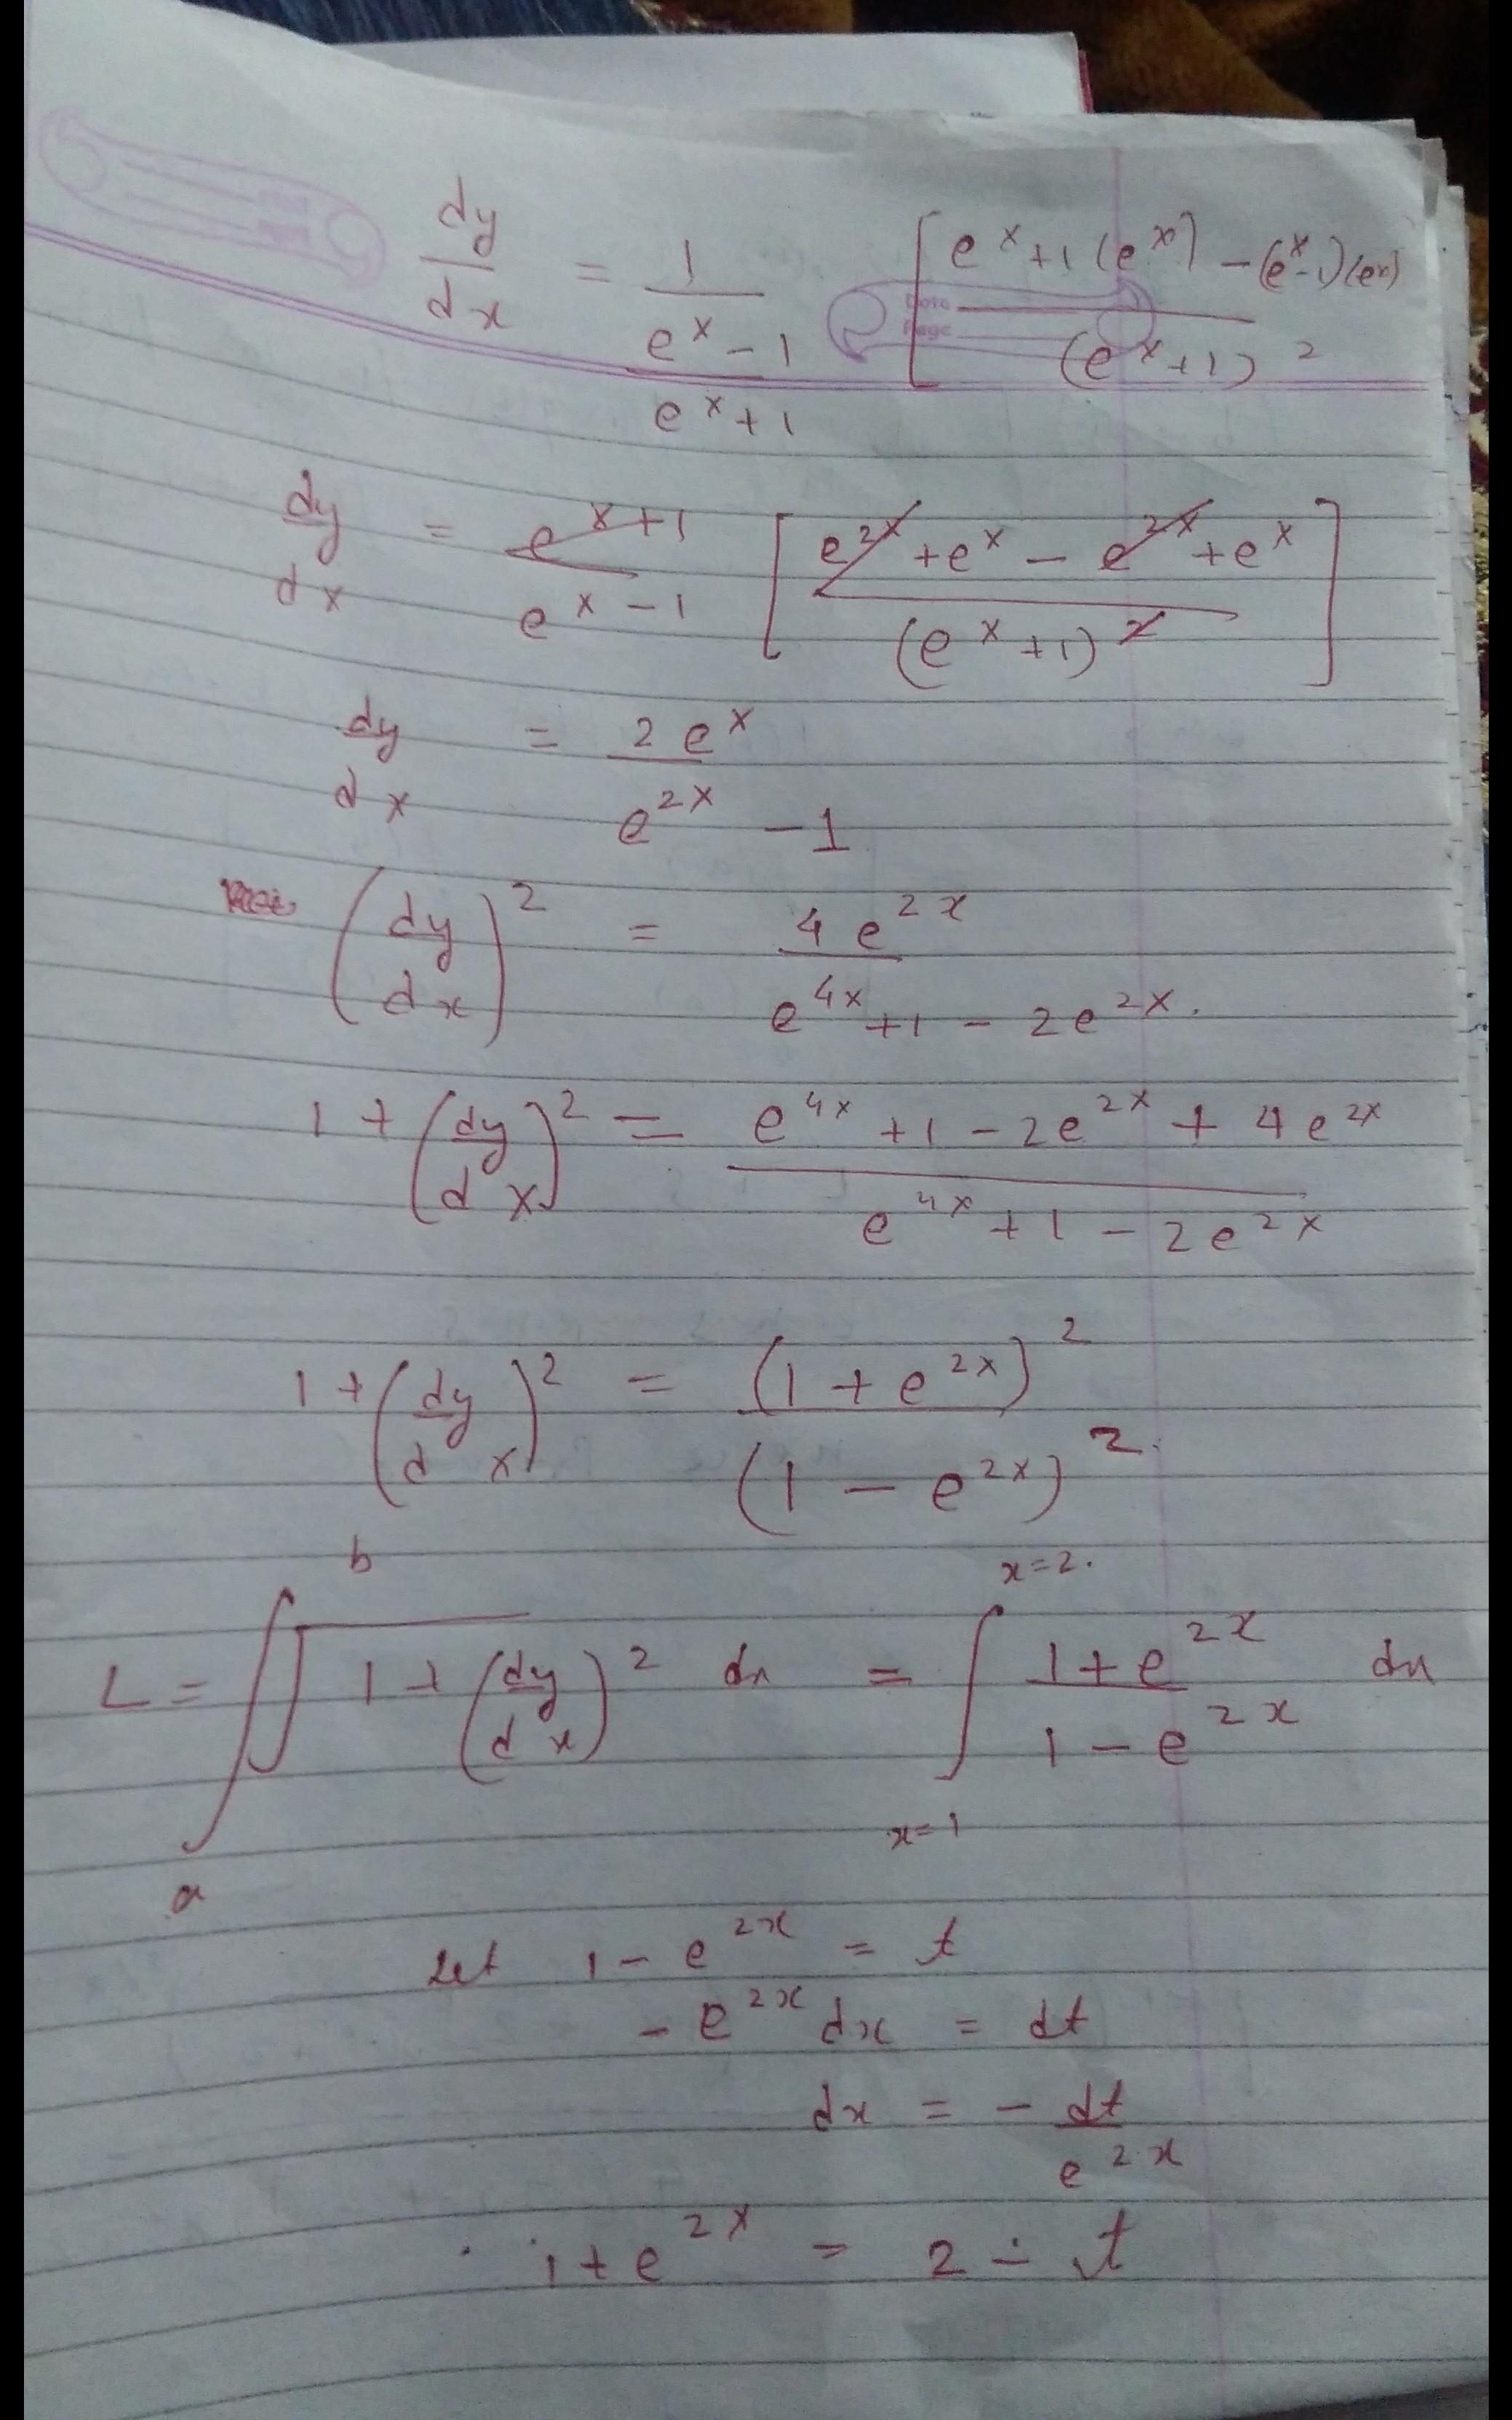 Date
Page
dy/dx = 1/((e^x - 1)/(e^x + 1)) [(e^x + 1 (e^x) - (e^x - 1)(e^x))/(e^x + 1)^2]
dy/dx = (e^x + 1)/(e^x - 1) [(e^2x + e^x - e^2x + e^x)/(e^x + 1)^2]
dy/dx = 2e^x/(e^2x - 1)
(dy/dx)^2 = 4e^2x/(e^4x + 1 - 2e^2x).
1 + (dy/dx)^2 = (e^4x + 1 - 2e^2x + 4e^2x)/(e^4x + 1 - 2e^2x)
1 + (dy/dx)^2 = (1 + e^2x)^2/(1 - e^2x)^2.
L = ∫_a^b √(1 + (dy/dx)^2) dx = ∫_{x=1}^{x=2.} (1 + e^2x)/(1 - e^2x) dx
Let 1 - e^2x = t
- e^2x dx = dt
dx = - dt/e^2x
1 + e^2x = 2 - t